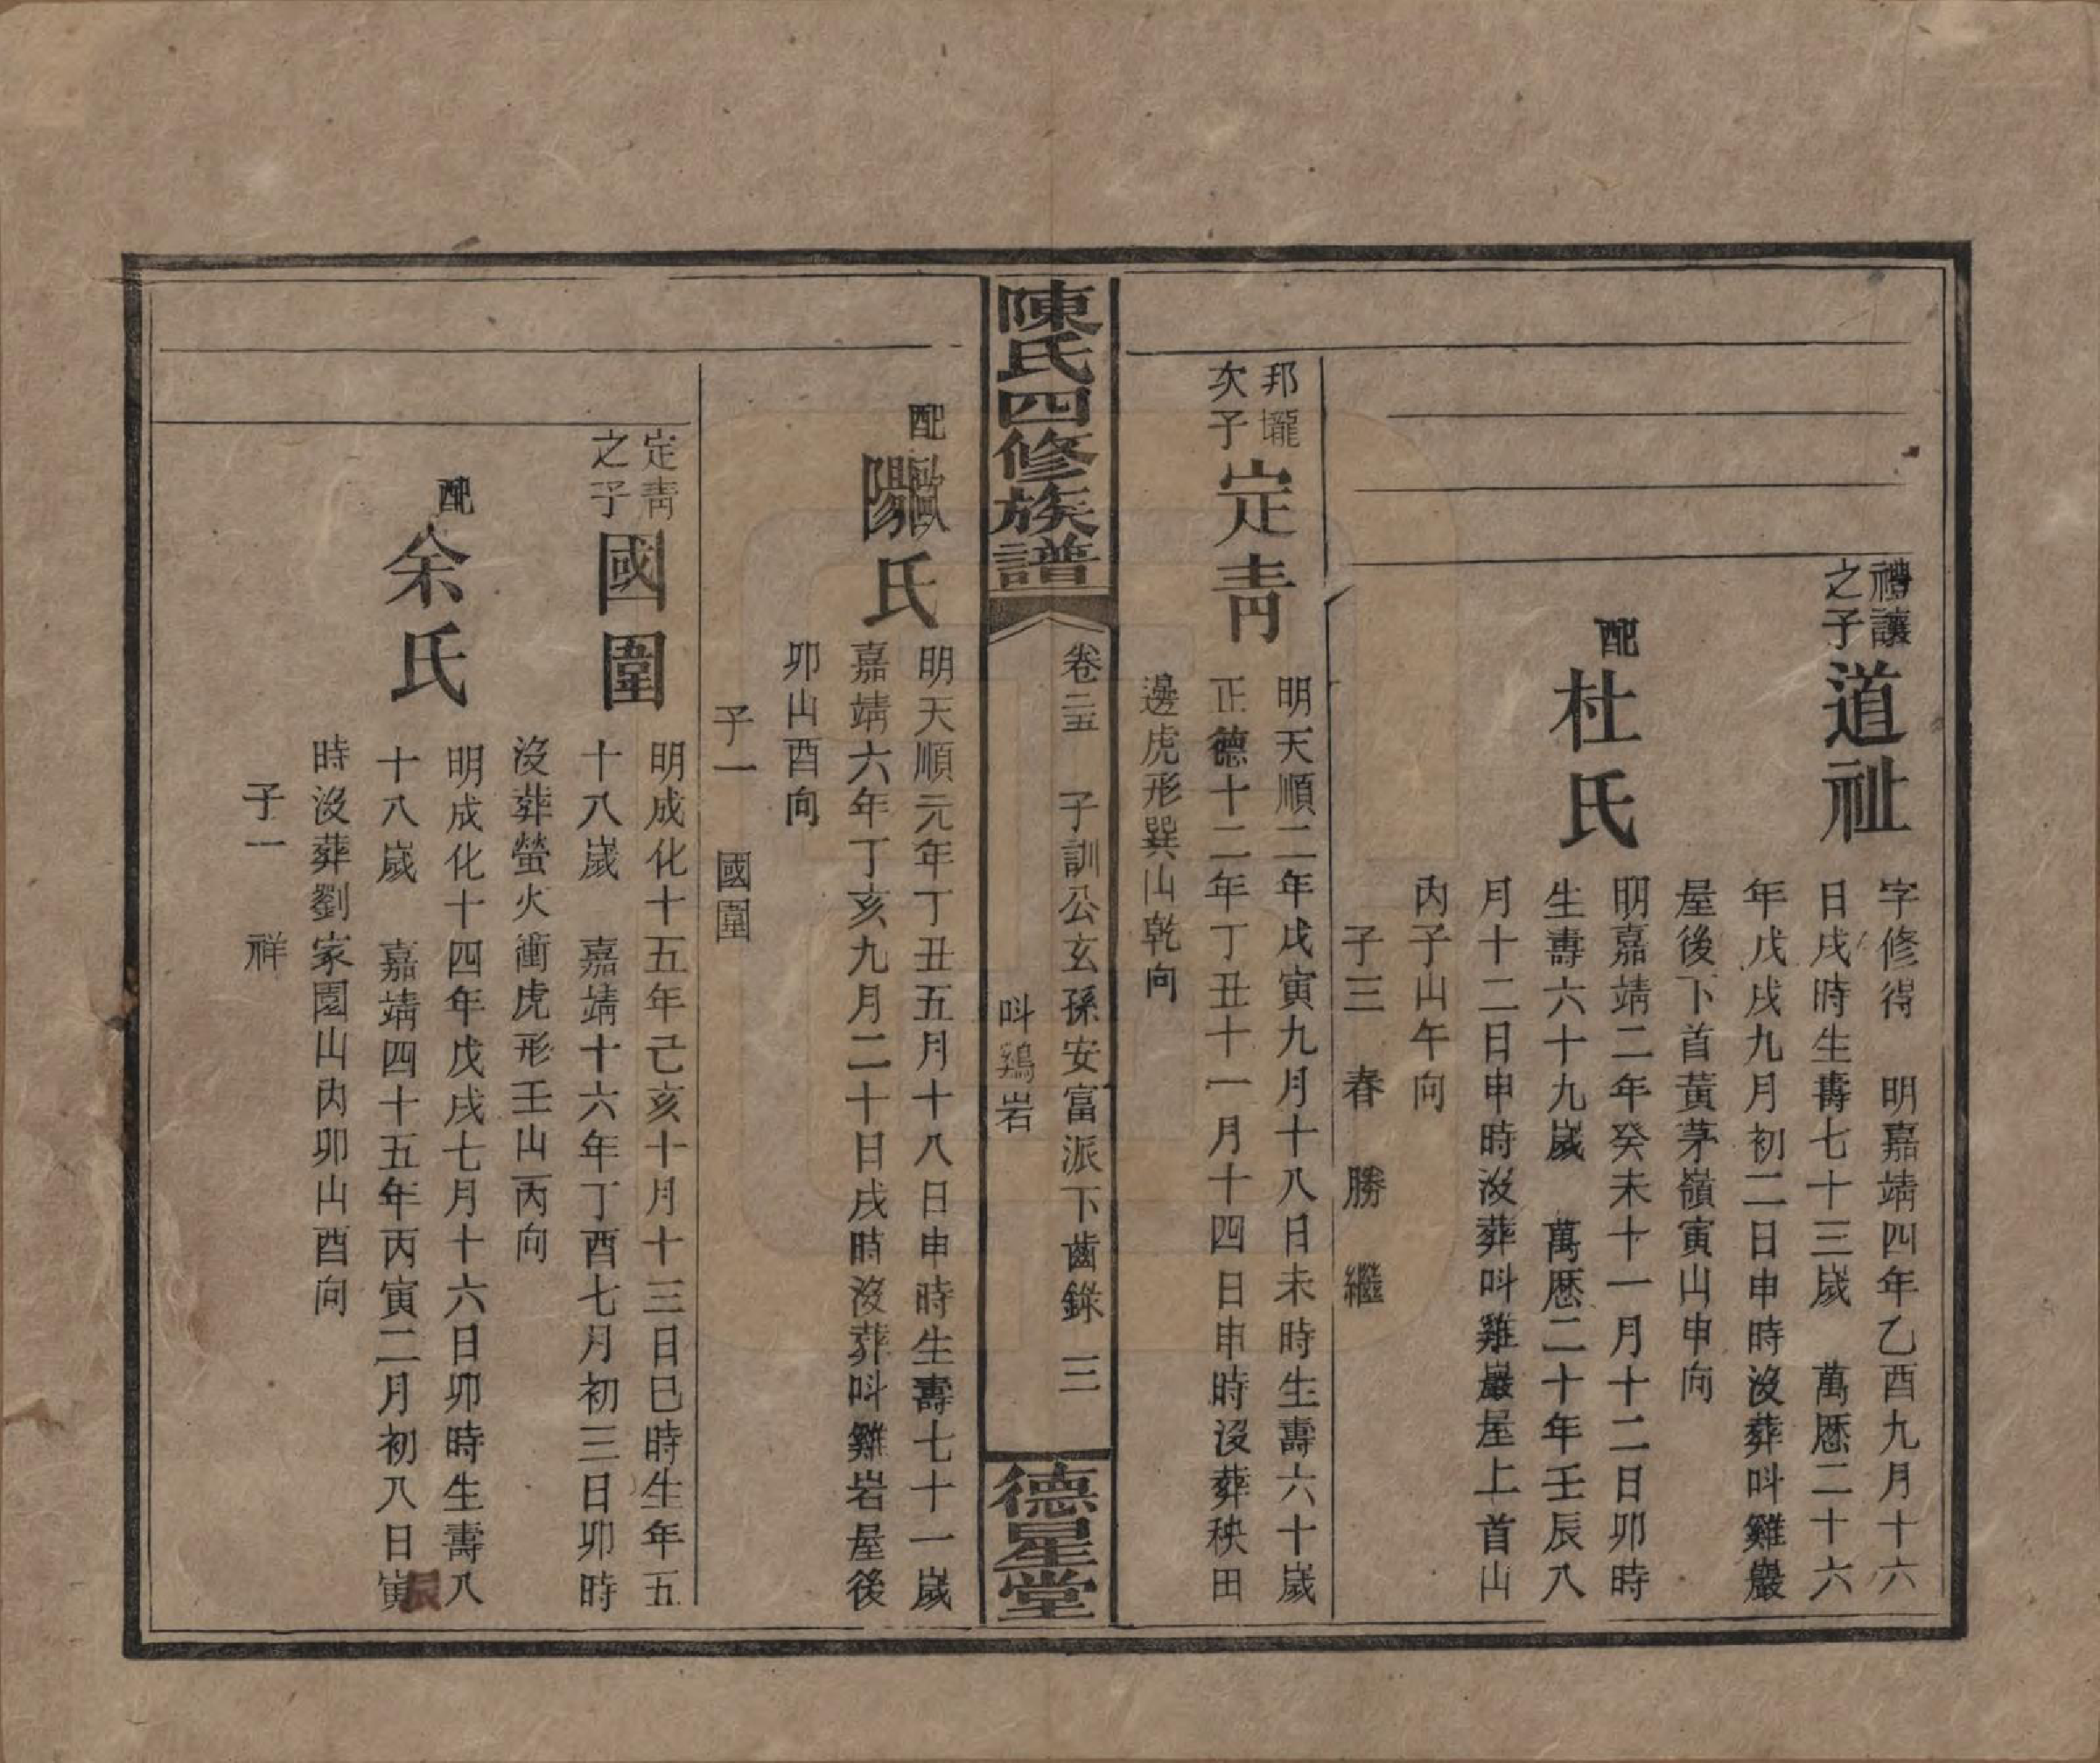 禮讓
之子
道祉
字修得　明嘉靖四年乙酉九月十六
日戌時生壽七十三嵗　萬厯二十六
年戊戌九月初二日申時沒葬呌雞巖
屋後下首黃茅嶺寅山申向
配
杜氏
明嘉靖二年癸未十一月十二日卯時
生壽六十九嵗　萬厯二十年壬辰八
月十二日申時沒葬呌雞巖屋上首山
內子山午向
子三　春　勝　繼
邦壠
次子
定青
明天順二年戊寅九月十八日未時生壽六十嵗
正德十二年丁丑十一月十四日申時沒葬秧田
邊虎形巽山乾向
陳氏四修族譜
卷二五　子訓公玄孫安富派下齒錄　三
呌鷄岩
德星堂
配
歐陽氏
明天順元年丁丑五月十八日申時生壽七十一嵗
嘉靖六年丁亥九月二十日戌時沒葬呌雞岩屋後
卯山酉向
子一　國圍
定青
之子
國圍
明成化十五年己亥十月十三日巳時生年五
十八嵗　嘉靖十六年丁酉七月初三日卯時
沒葬螢火衝虎形壬山丙向
配
余氏
明成化十四年戊戌七月十六日卯時生壽八
十八嵗　嘉靖四十五年丙寅二月初八日寅
辰
時沒葬劉家園山內卯山酉向
子一　祥